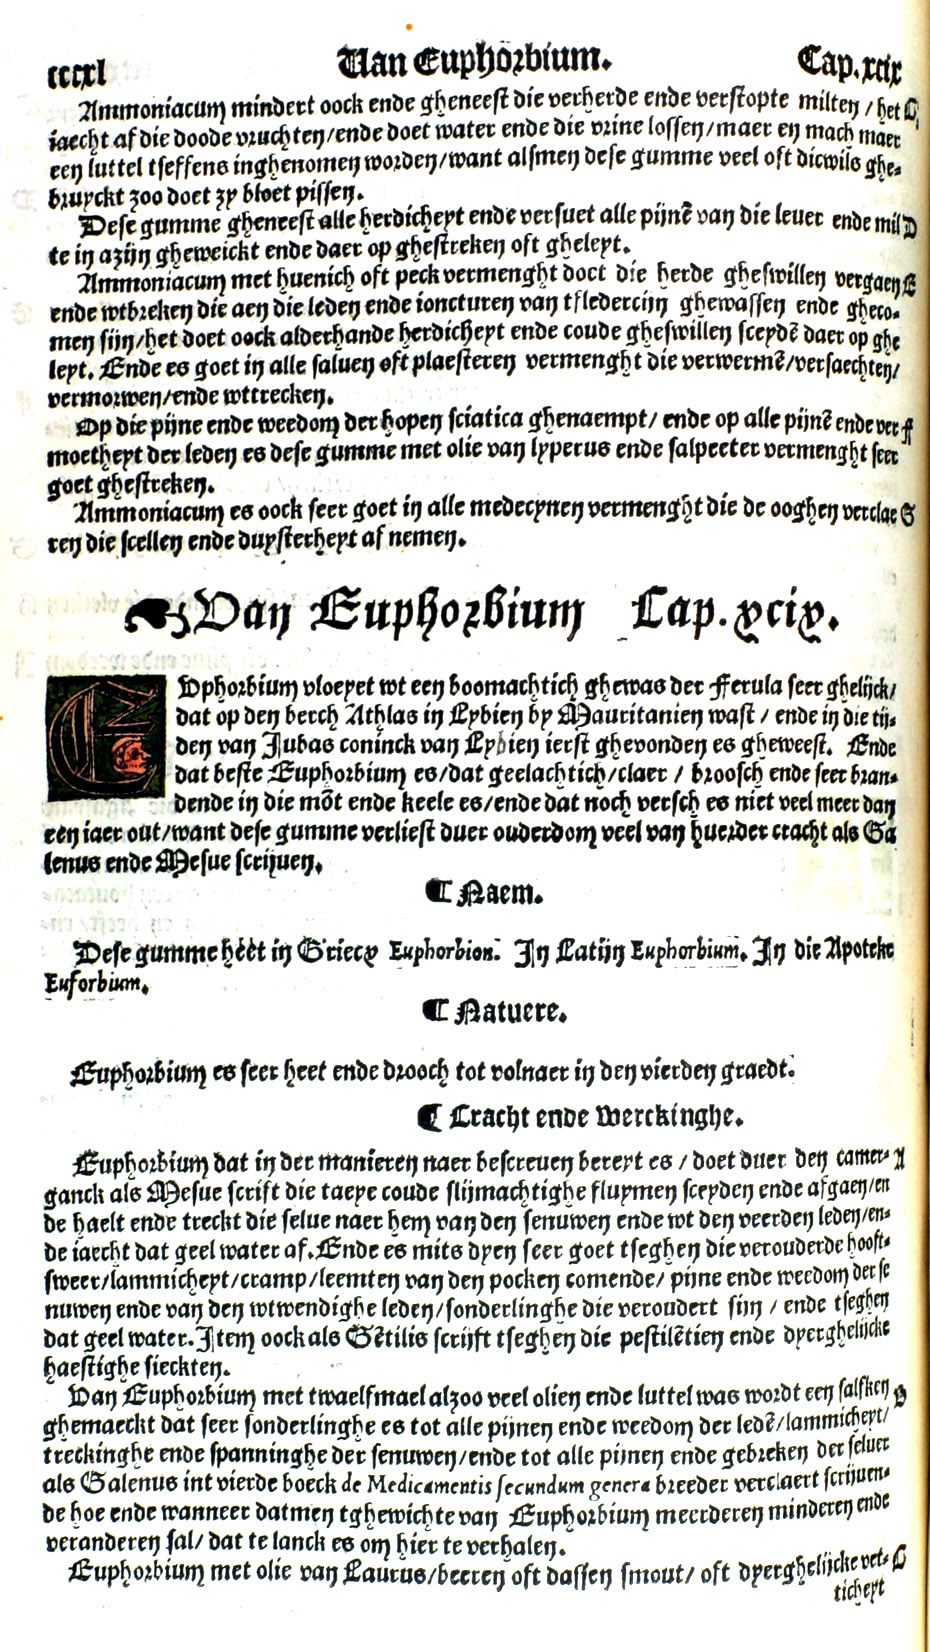 ccccxl Van Euphorbium. Cap.xcix
Ammoniacum mindert oock ende gheneest die verherde ende verstopte milten / het C
iaecht af die doode vruchten/ende doet water ende die vrine lossen/maer en mach maer
een luttel tseffens inghenomen worden/want alsmen dese gumme veel oft dicwils ghe-
bruyckt zoo doet zy bloet pissen.
Dese gumme gheneest alle herdicheyt ende versuet alle pijnē van die leuer ende mil D
te in azijn gheweickt ende daer op ghestreken oft gheleyt.
Ammoniacum met huenich oft peck vermenght doet die herde gheswillen vergaen E
ende wtbreken die aen die leden ende ioncturen van tfledercijn ghewassen ende gheco-
men sijn/het doet oock alderhande herdicheyt ende coude gheswillen sceydē daer op ghe
leyt. Ende es goet in alle saluen oft plaesteren vermenght die verwermē/versaechten/
vermorwen/ende wttrecken.
Op die pijne ende weedom der hopen sciatica ghenaempt/ ende op alle pijnē ende ver F
moetheyt der leden es dese gumme met olie van lyperus ende salpeeter vermenght seer
goet ghestreken.
Ammoniacum es oock seer goet in alle medecynen vermenght die de ooghen verclae G
ren die scellen ende duysterheyt af nemen.
Van Euphorbium Cap. xcix.
EVphorbium vloeyet wt een boomachtich ghewas der Ferula seer ghelijck/
dat op den berch Athlas in Lybien by Mauritanien wast / ende in die tij-
den van Jubas coninck van Lybien ierst ghevonden es gheweest. Ende
dat beste Euphorbium es/dat geelachtich/claer / broosch ende seer bran-
dende in die mōt ende keele es/ende dat noch versch es niet veel meer dan
een iaer out/want dese gumme verliest duer ouderdom veel van huerder cracht als Ga
lenus ende Mesue scrijuen.
¶ Naem.
Dese gumme heet in Griecx Euphorbion. In Latijn Euphorbium. In die Apoteke
Euforbium.
¶ Natuere.
Euphorbium es seer heet ende drooch tot volnaer in den vierden graedt.
¶ Cracht ende Werckinghe.
Euphorbium dat in der manieren naer bescreuen bereyt es / doet duer den camer- A
ganck als Mesue scrift die taeye coude slijmachtighe fluymen sceyden ende afgaen/en
de haelt ende treckt die selue naer hem van den senuwen ende wt den veerden leden/en-
de iaecht dat geel water af. Ende es mits dyen seer goet tseghen die verouderde hooft-
sweer/lammicheyt/cramp/leemten van den pocken comende/ pijne ende weedom der se
nuwen ende van den wtwendighe leden/sonderlinghe die veroudert sijn / ende tseghen
dat geel water. Item oock als Gētilis scrijft tseghen die pestilētien ende dyerghelijcke
haestighe sieckten.
Van Euphorbium met twaelfmael alzoo veel olien ende luttel was wordt een salfken B
ghemaeckt dat seer sonderlinghe es tot alle pijnen ende weedom der ledē/lammicheyt/
treckinghe ende spanninghe der senuwen/ende tot alle pijnen ende gebreken der seluer
als Galenus int vierde boeck de Medicamentis secundum genera breeder verclaert scrijuen-
de hoe ende wanneer datmen tghewichte van Euphorbium meerderen minderen ende
veranderen sal/ dat te lanck es om hier te verhalen.
Euphorbium met olie van Laurus/beeren oft dassen smout/ oft dyerghelijcke vet- C
ticheyt